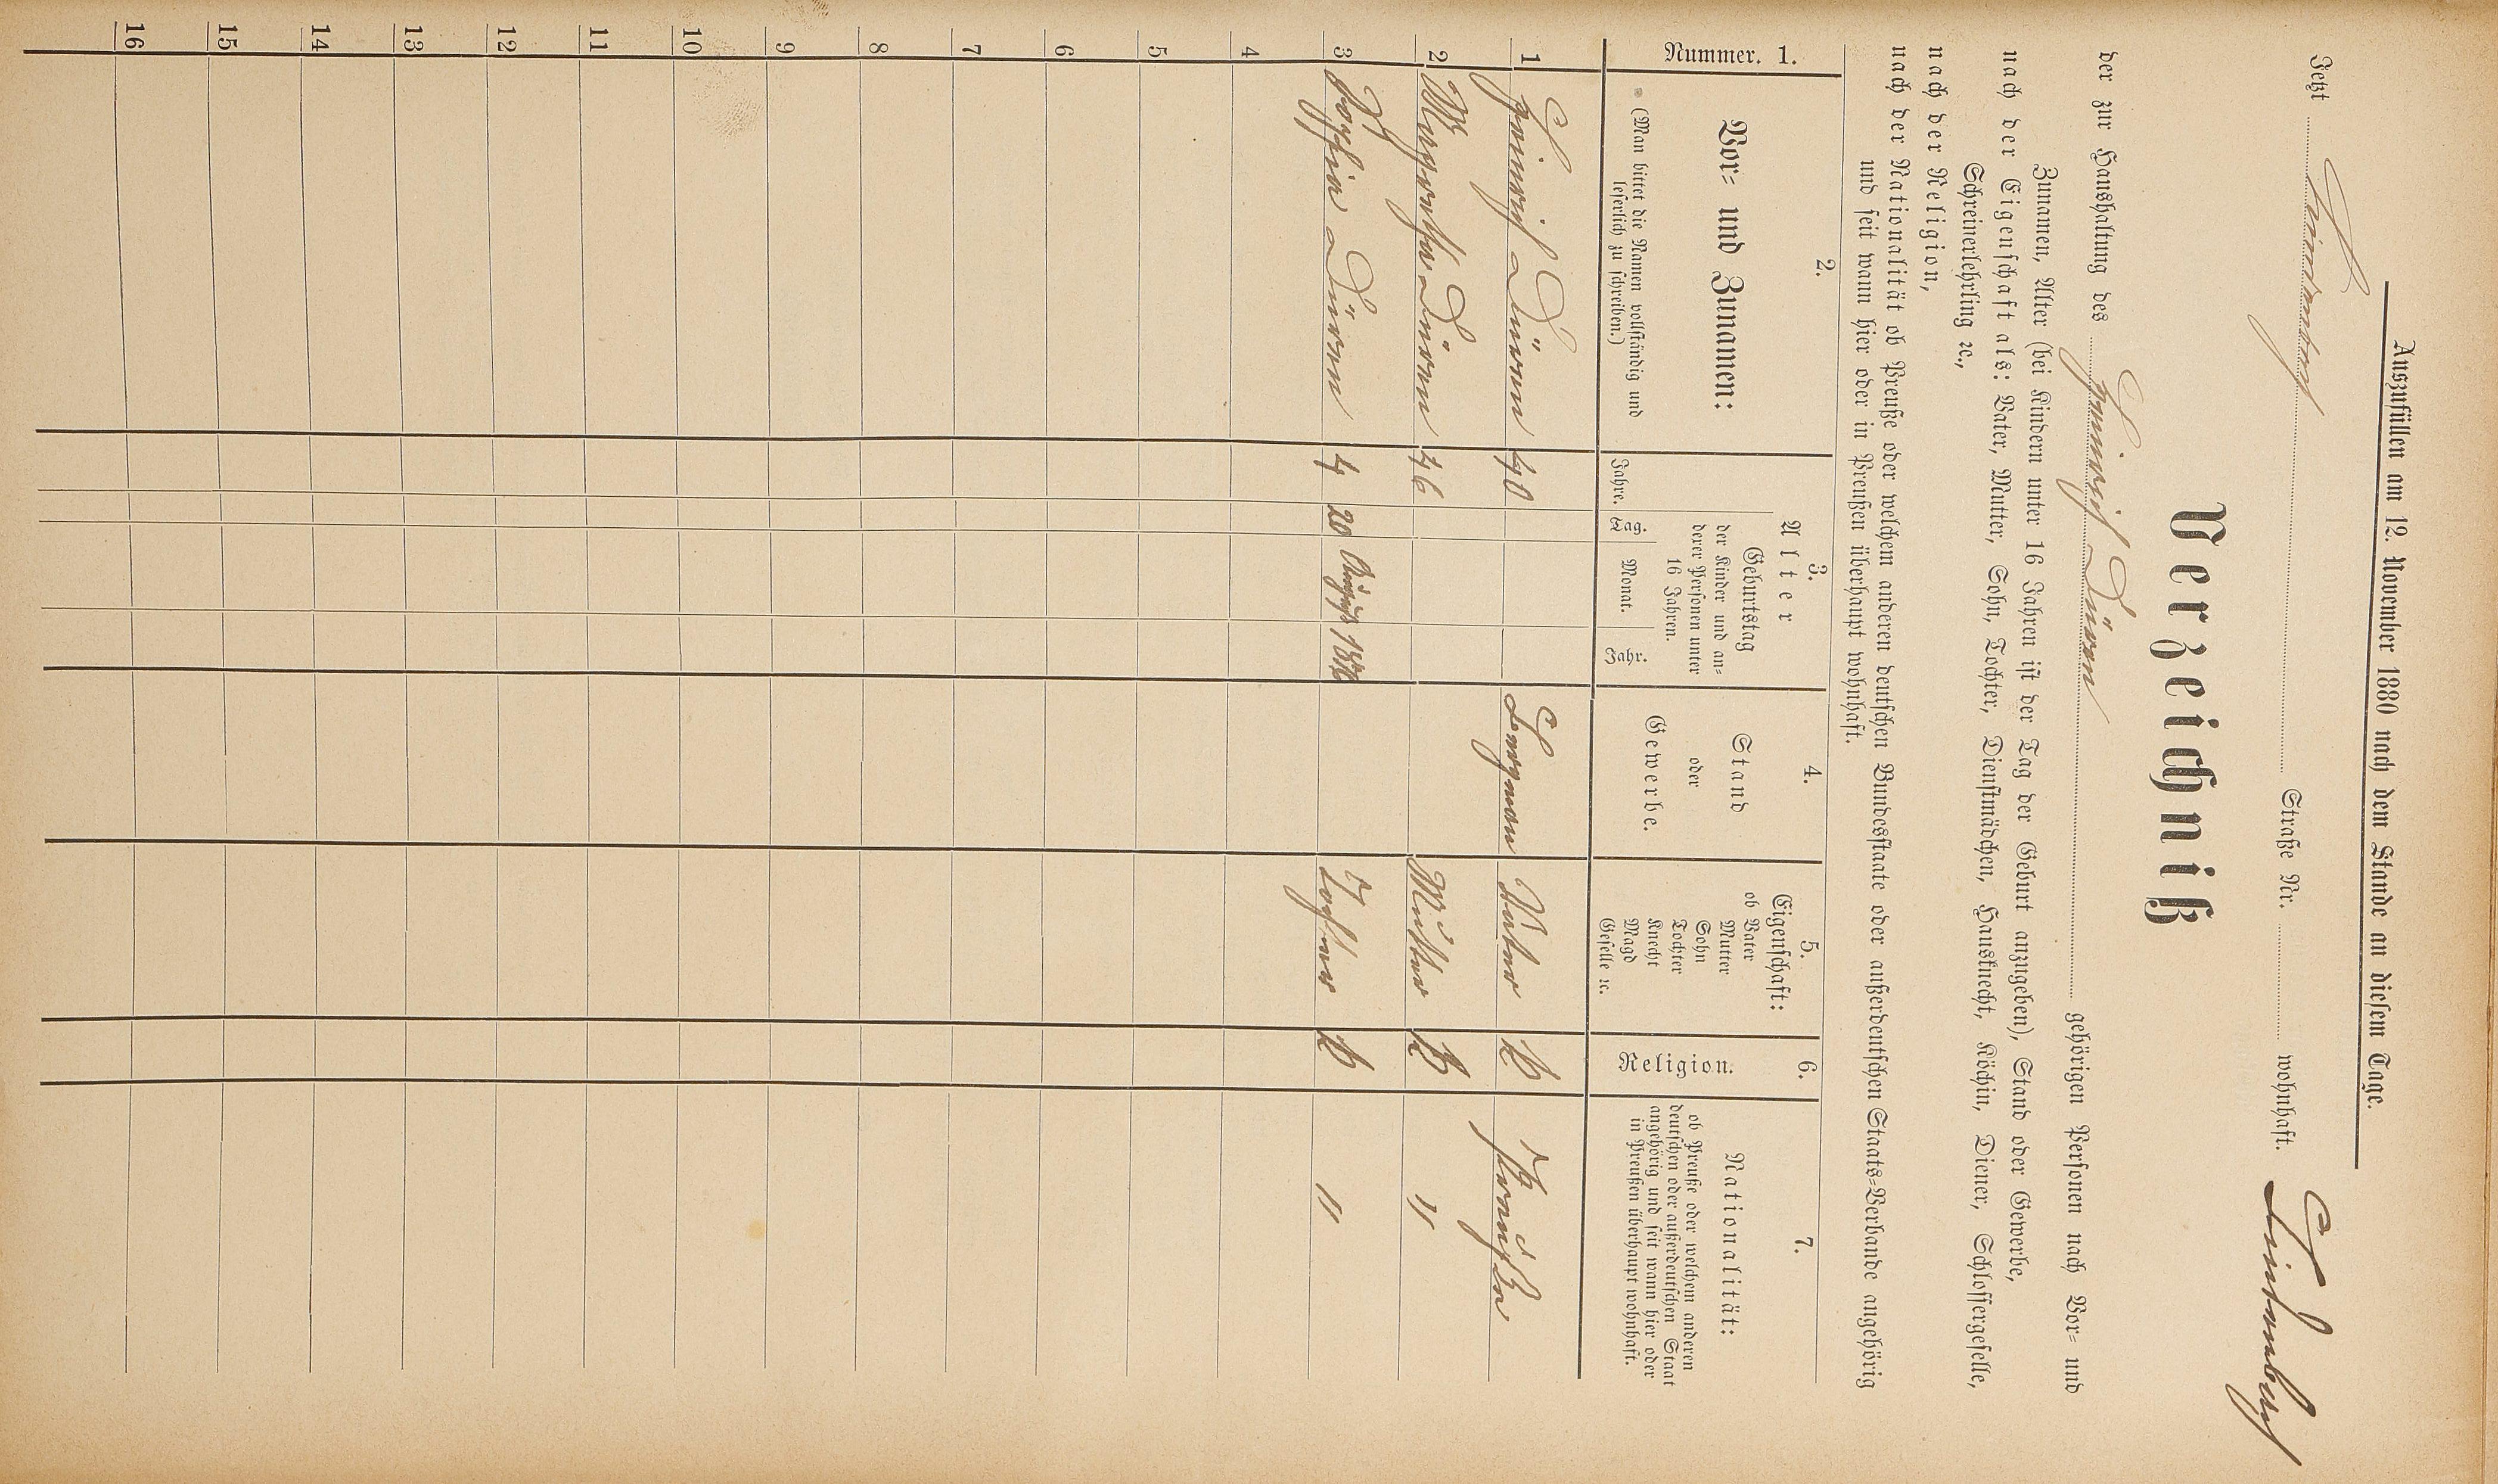 Auszufüllen am 12. November 1880 nach dem Stande an diesem Tage.
Jetzt Straße Nr. wohnhaft.
Verzeichniß
der zur Haushaltung des Heinrich Düren gehörigen Personen nach Vor- und
Zunamen, Alter (bei Kindern unter 16 Jahren ist der Tag der Geburt anzugeben), Stand oder Gewerbe,
nach der Eigenschaft als: Vater, Mutter, Sohn, Tochter, Dienstmädchen, Hausknecht, Köchin, Diener, Schlossergeselle,
Schreinerlehrling ꝛc.,
nach der Religion,
nach der Nationalität ob Preuße oder welchem anderen deutschen Bundesstaate oder außerdeutschen Staats-Verbande angehörig
und seit wann hier oder in Preußen überhaupt wohnhaft.
1. Nummer.
2. Vor- und Zunamen:
(Man bittet die Namen vollständig und
leserlich zu schreiben.)
3.
Alter
Jahre.
Geburtstag
der Kinder und an-
derer Personen unter
16 Jahren.
Tag. Monat. Jahr.
4.
Stand
oder
Gewerbe.
5.
Eigenschaft:
ob Vater
Mutter
Sohn
Tochter
Knecht
Magd
Geselle ꝛc.
6.
Religion.
7.
Nationalität:
ob Preuße oder welchem anderen
deutschen oder außerdeutschen Staat
angehörig und seit wann hier oder
in Preußen überhaupt wohnhaft.
1 Heinrich Düren 40 Vater K
2 Margaretha Düren 46 Mutter K "
3 Düren 4 20 August Tochter K "
4
5
6
7
8
9
10
11
12
13
14
15
16